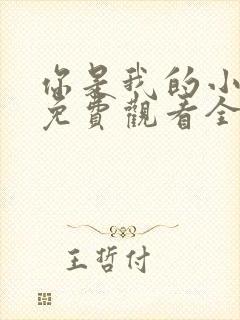 你是我的小
免費觀看全
王哲付